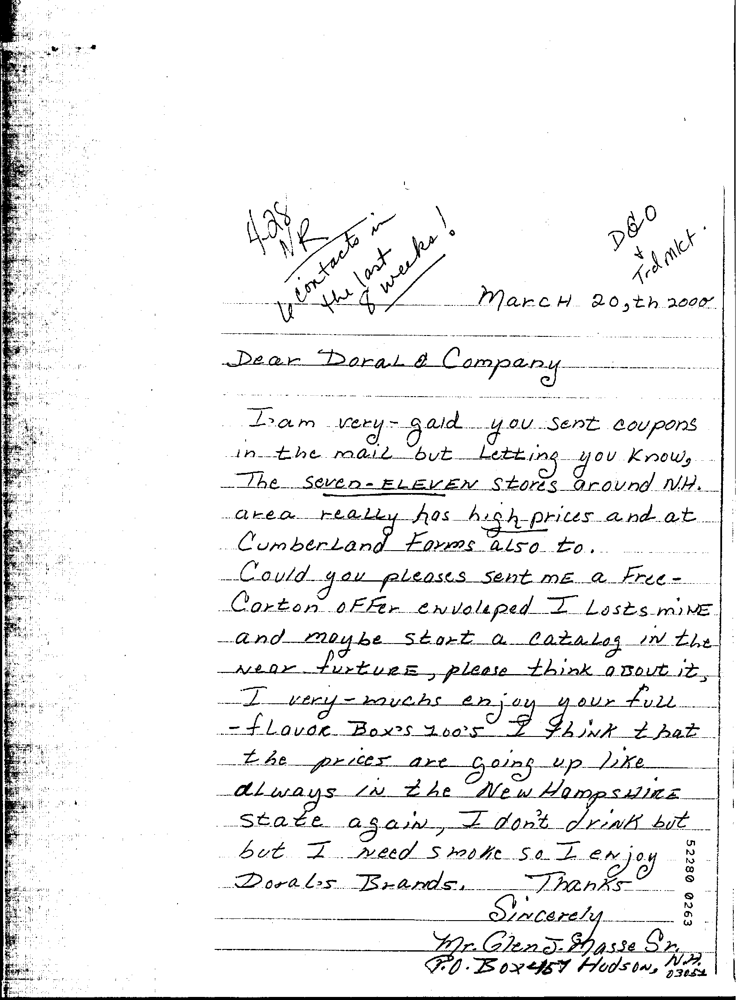 4-28
NR
6 contacts in
the last
8 weeks!
D&O
+
Trd Mkt.
March 20,th 2000
Dear Doral & Company
I am very-gald you sent coupons
in the mail but Letting you know,
The seven-ELEVEN stores around N.H.
area really has high-prices and at
Cumberland Farms also to.
Could you pleases sent me a Free-
Carton offer envoleped I Losts mine
and maybe start a catalog in the
near furture, please think about it,
I very-muchs enjoy your full
-flavor Box's 100's I think that
the prices are going up like
always in the New Hampshire
state again, I don't drink but
but I need smoke so I enjoy
Doral's Brands. Thanks
Sincerely
Mr. Glen J. Masse Sr.
P.O. Box 457 Hudson, N.H.
03051
52280 0263